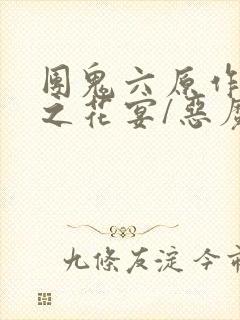 團鬼六原作
之花宴/惡魔
九條友淀 今市